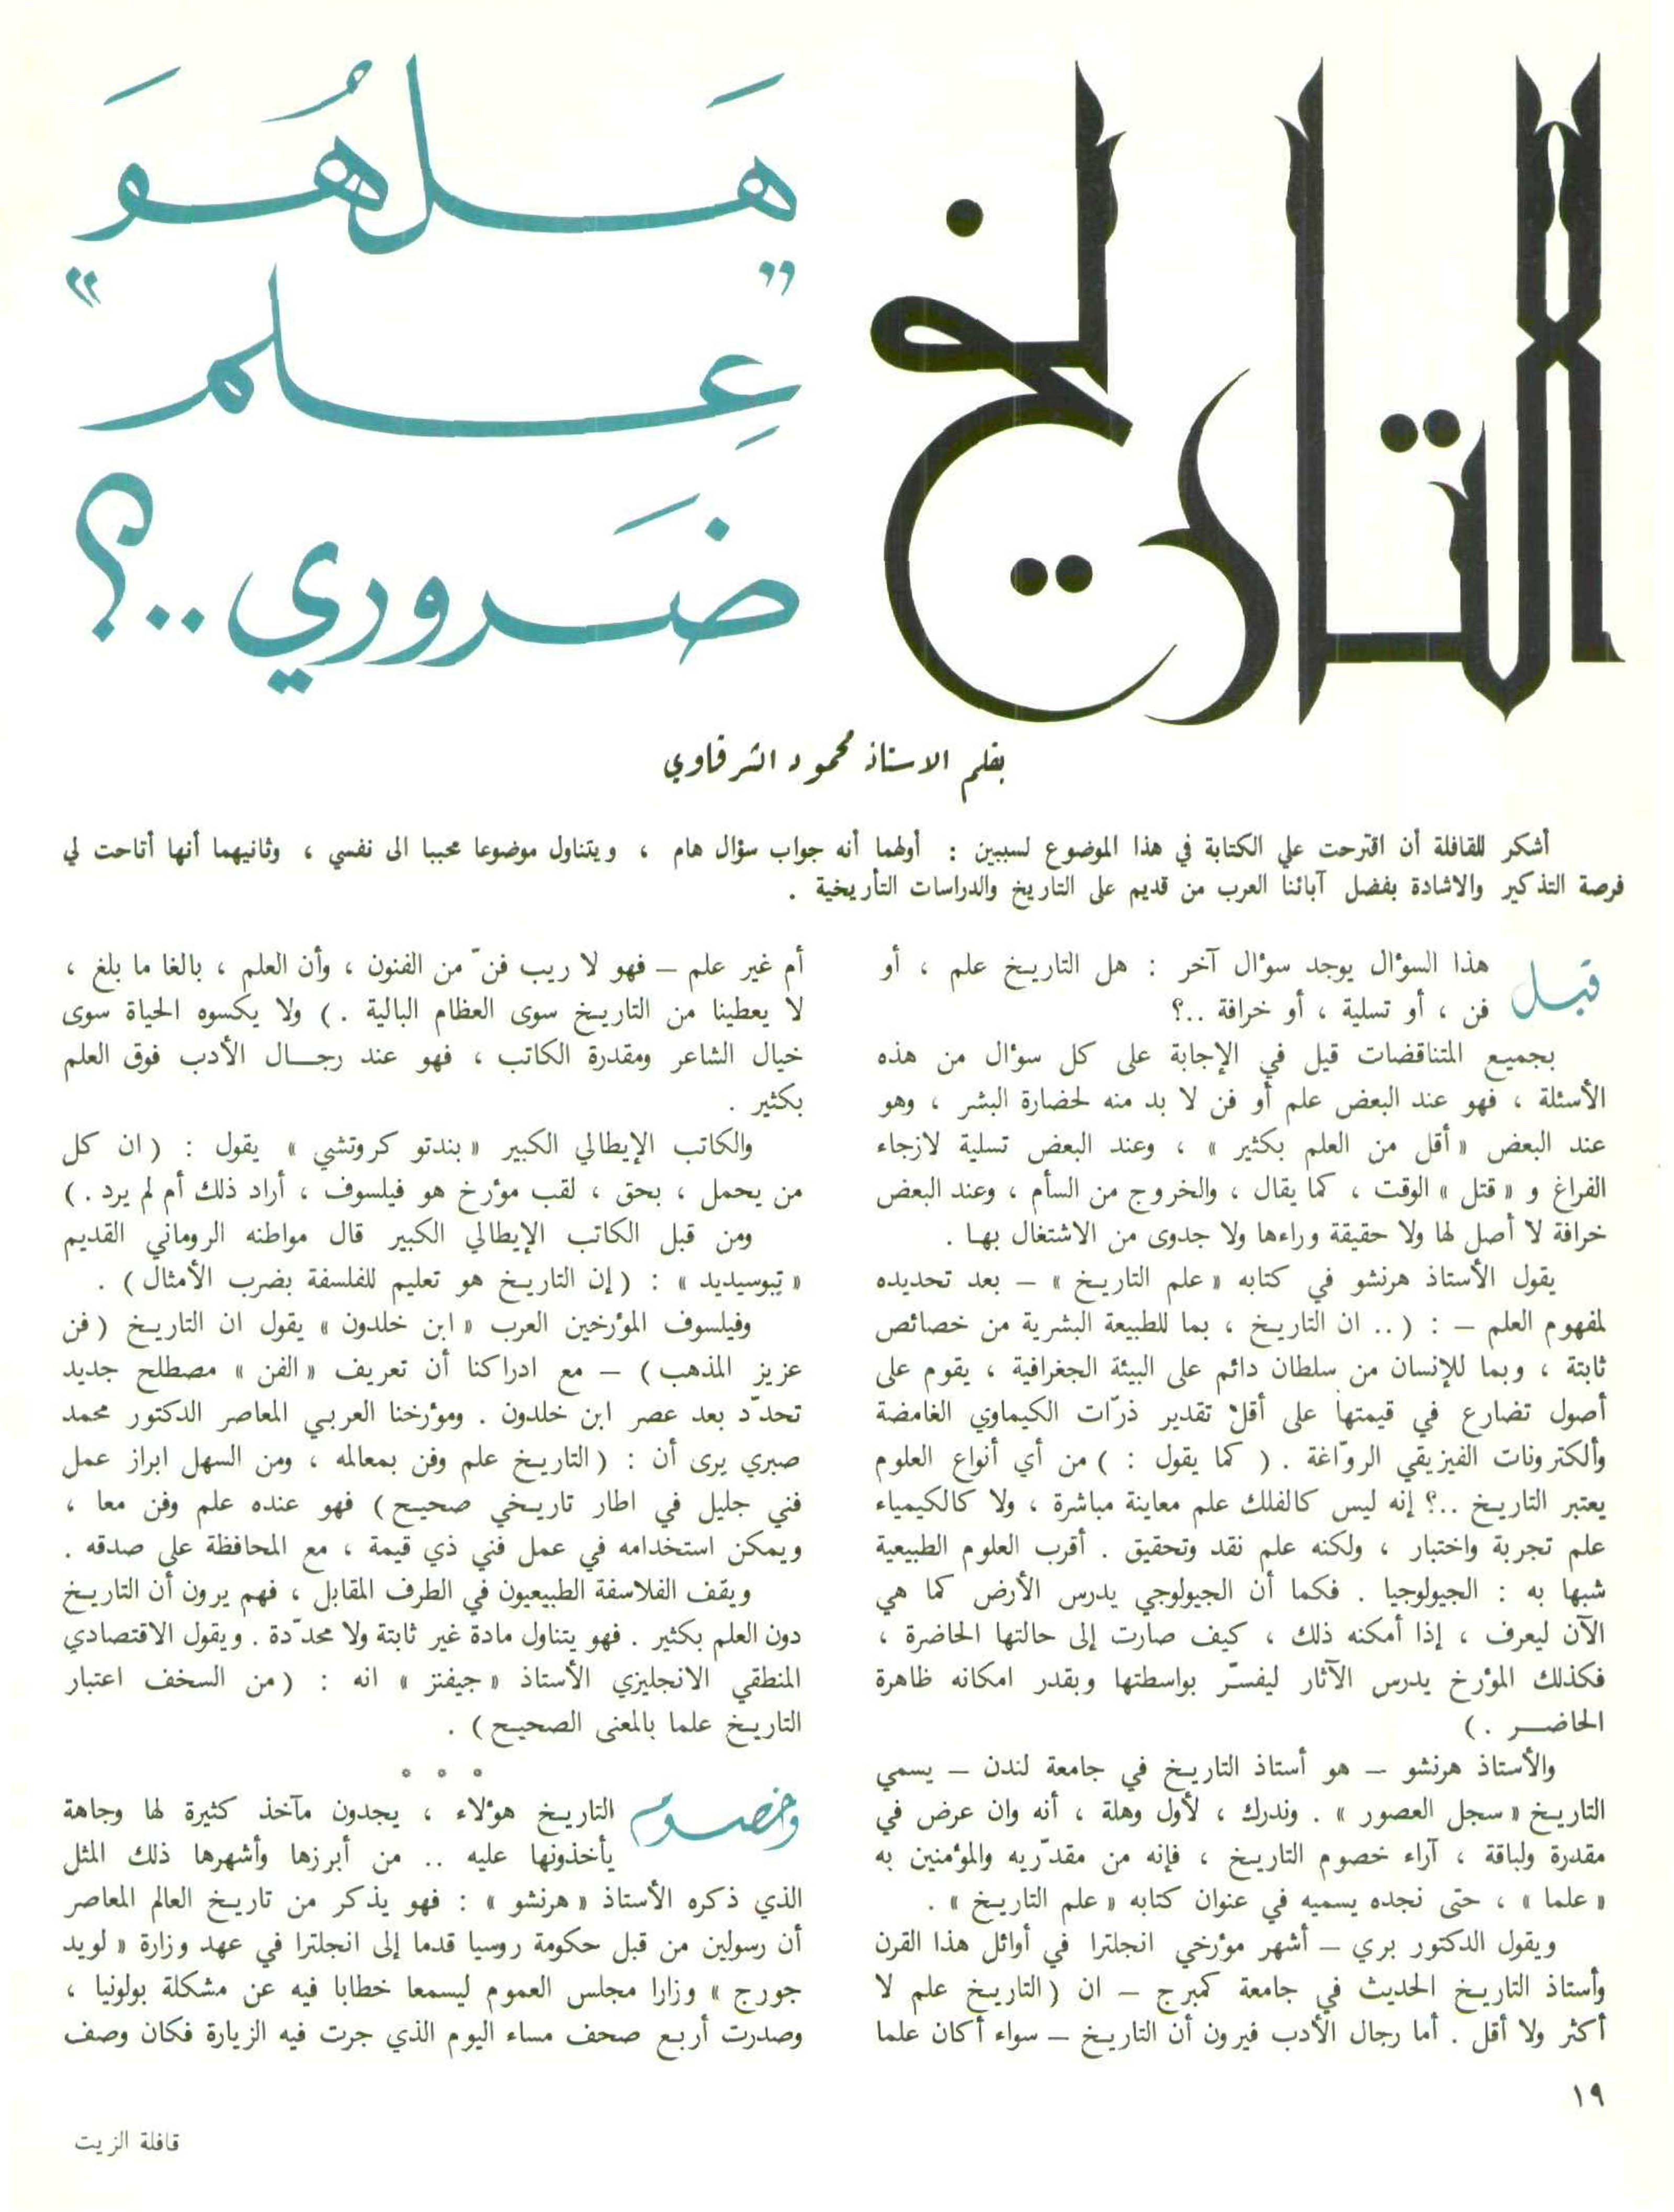 التاريخ
هَل هُوَ
"علم"
ضَروري..؟
بقلم الاستاذ محمود الشرقاوي
أشكر للقافلة أن اقترحت علي الكتابة في هذا الموضوع لسببين : أولهما أنه جواب سؤال هام ، ويتناول موضوعا محببا الى نفسي ، وثانيهما أنها أتاحت لي
فرصة التذكير والاشادة بفضل آبائنا العرب من قديم على التاريخ والدراسات التأريخية .
قبل هذا السؤال يوجد سؤال آخر : هل التاريخ علم ، أو
فن ، أو تسلية ، أو خرافة ..؟
بجميع المتناقضات قيل في الإجابة على كل سؤال من هذه
الأسئلة ، فهو عند البعض علم أو فن لا بد منه لحضارة البشر ، وهو
عند البعض « أقل من العلم بكثير » ، وعند البعض تسلية لازجاء
الفراغ و « قتل » الوقت ، كما يقال ، والخروج من السأم ، وعند البعض
خرافة لا أصل لها ولا حقيقة وراءها ولا جدوى من الاشتغال بها .
يقول الأستاذ هرنشو في كتابه « علم التاريخ » – بعد تحديده
لمفهوم العلم – : ( .. ان التاريخ ، بما للطبيعة البشرية من خصائص
ثابتة ، وبما للإنسان من سلطان دائم على البيئة الجغرافية ، يقوم على
أصول تضارع في قيمتها على أقل تقدير ذرّات الكيماوي الغامضة
وألكترونات الفيزيقي الروّاغة . ( كما يقول : ) من أي أنواع العلوم
يعتبر التاريخ ..؟ إنه ليس كالفلك علم معاينة مباشرة ، ولا كالكيمياء
علم تجربة واختبار ، ولكنه علم نقد وتحقيق . أقرب العلوم الطبيعية
شبها به : الجيولوجيا . فكما أن الجيولوجي يدرس الأرض كما هي
الآن ليعرف ، إذا أمكنه ذلك ، كيف صارت إلى حالتها الحاضرة ،
فكذلك المؤرخ يدرس الآثار ليفسّر بواسطتها وبقدر امكانه ظاهرة
الحاضر . )
والأستاذ هرنشو – هو أستاذ التاريخ في جامعة لندن – يسمي
التاريخ « سجل العصور » . وندرك ، لأول وهلة ، أنه وان عرض في
مقدرة ولباقة ، آراء خصوم التاريخ ، فإنه من مقدّريه والمؤمنين به
« علما » ، حتى نجده يسميه في عنوان كتابه « علم التاريخ » .
ويقول الدكتور بري – أشهر مؤرخي انجلترا في أوائل هذا القرن
وأستاذ التاريخ الحديث في جامعة كمبرج – ان ( التاريخ علم لا
أكثر ولا أقل . أما رجال الأدب فيرون أن التاريخ – سواء أكان علما
أم غير علم – فهو لا ريب فنّ من الفنون ، وأن العلم ، بالغا ما بلغ ،
لا يعطينا من التاريخ سوى العظام البالية . ) ولا يكسوه الحياة سوى
خيال الشاعر ومقدرة الكاتب ، فهو عند رجال الأدب فوق العلم
بكثير .
والكاتب الإيطالي الكبير « بندتو كروتشي » يقول : ( ان كل
من يحمل ، بحق ، لقب مؤرخ هو فيلسوف ، أراد ذلك أم لم يرد . )
ومن قبل الكاتب الإيطالي الكبير قال مواطنه الروماني القديم
« تيوسيديد » : ( إن التاريخ هو تعليم للفلسفة بضرب الأمثال ) .
وفيلسوف المؤرخين العرب « ابن خلدون » يقول ان التاريخ ( فن
عزيز المذهب ) – مع ادراكنا أن تعريف « الفن » مصطلح جديد
تحدّد بعد عصر ابن خلدون . ومؤرخنا العربي المعاصر الدكتور محمد
صبري يرى أن : ( التاريخ علم وفن بمعالمه ، ومن السهل ابراز عمل
فني جليل في اطار تاريخي صحيح ) فهو عنده علم وفن معا ،
ويمكن استخدامه في عمل فني ذي قيمة ، مع المحافظة على صدقه .
ويقف الفلاسفة الطبيعيون في الطرف المقابل ، فهم يرون أن التاريخ
دون العلم بكثير . فهو يتناول مادة غير ثابتة ولا محدّدة . ويقول الاقتصادي
المنطقي الانجليزي الأستاذ « جيفنز » انه : ( من السخف اعتبار
التاريخ علما بالمعنى الصحيح ) .
° ° °
وخصوم التاريخ هؤلاء ، يجدون مآخذ كثيرة لها وجاهة
يأخذونها عليه .. من أبرزها وأشهرها ذلك المثل
الذي ذكره الأستاذ « هرنشو » : فهو يذكر من تاريخ العالم المعاصر
أن رسولين من قبل حكومة روسيا قدما إلى انجلترا في عهد وزارة « لويد
جورج » وزارا مجلس العموم ليسمعا خطابا فيه عن مشكلة بولونيا ،
وصدرت أربع صحف مساء اليوم الذي جرت فيه الزيارة فكان وصف
١٩
قافلة الزيت